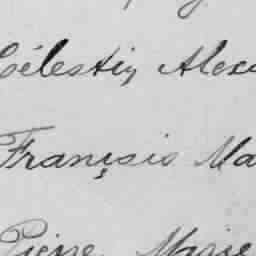 Célestin Alex
Françsis Ma
Pierre Marie